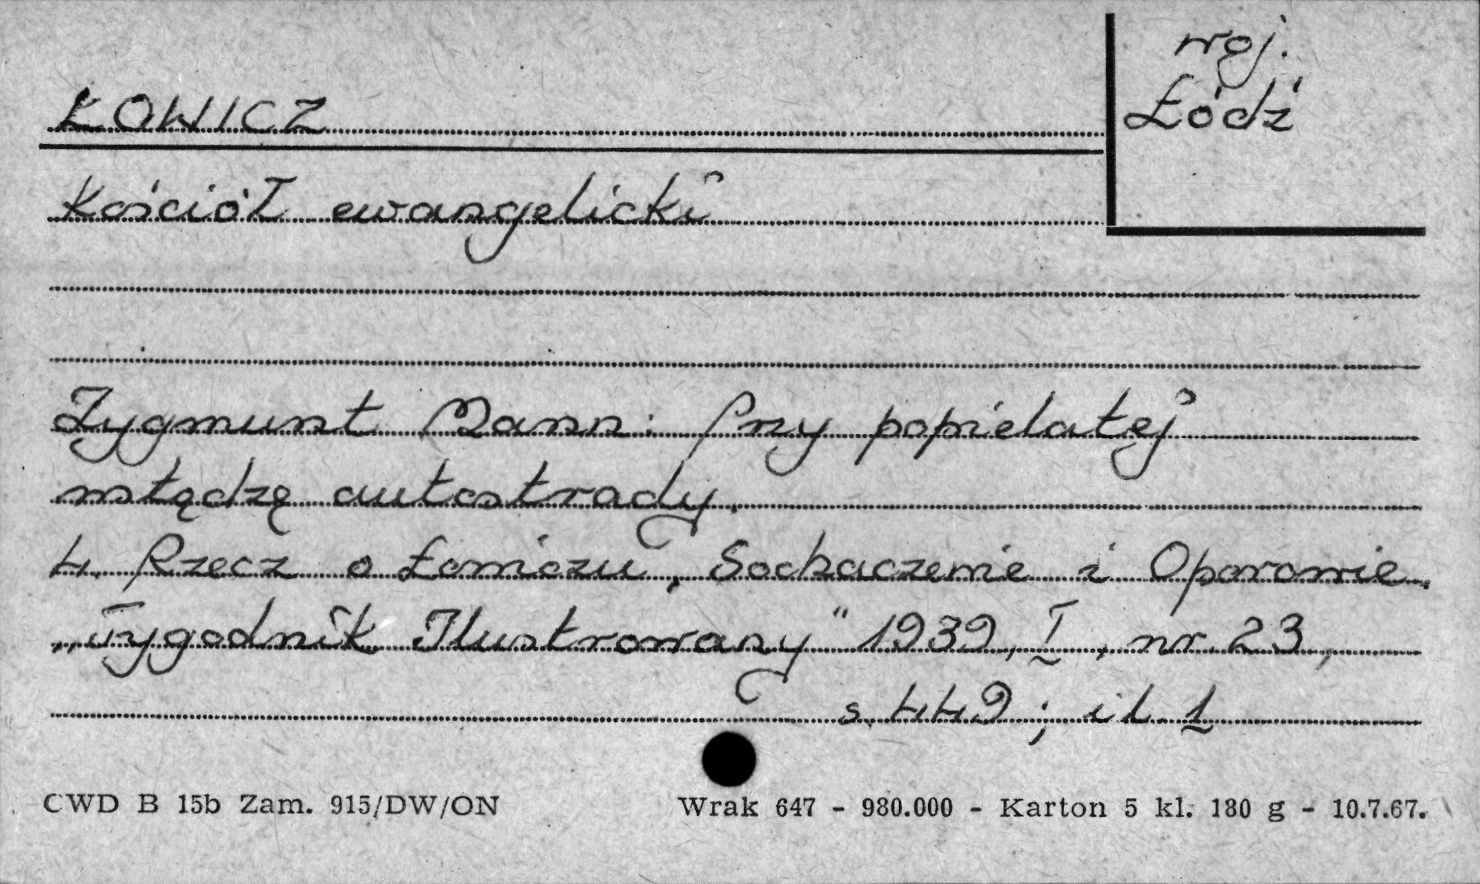 woj.
Łódź
ŁOWICZ
Kościół ewangelicki
Zygmunt Mann: Przy popielatej
wstędze autostrady.
4. Rzecz o Łowiczu, Sochaczewie i Oporowie.
„Tygodnik Ilustrowany" 1939, I, nr. 23,
s. 449; il. 1
CWD B 15b Zam. 915/DW/ON Wrak 647 - 980.000 - Karton 5 kl. 180 g - 10.7.67.